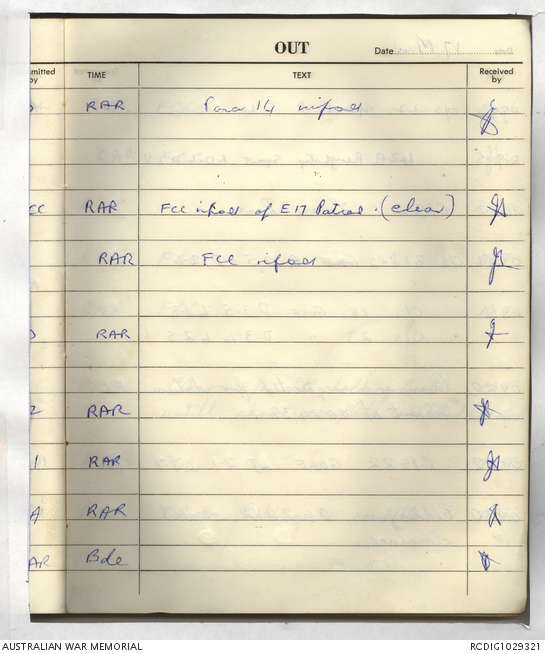 OUT Date
mitted by TIME TEXT Received by
RAR Para 14 infod
CC RAR FCC infod of E17 Patrol. (clear)
RAR FCC infod
RAR
2 RAR
1 RAR
A RAR
AR Bde
AUSTRALIAN WAR MEMORIAL RCDIG1029321